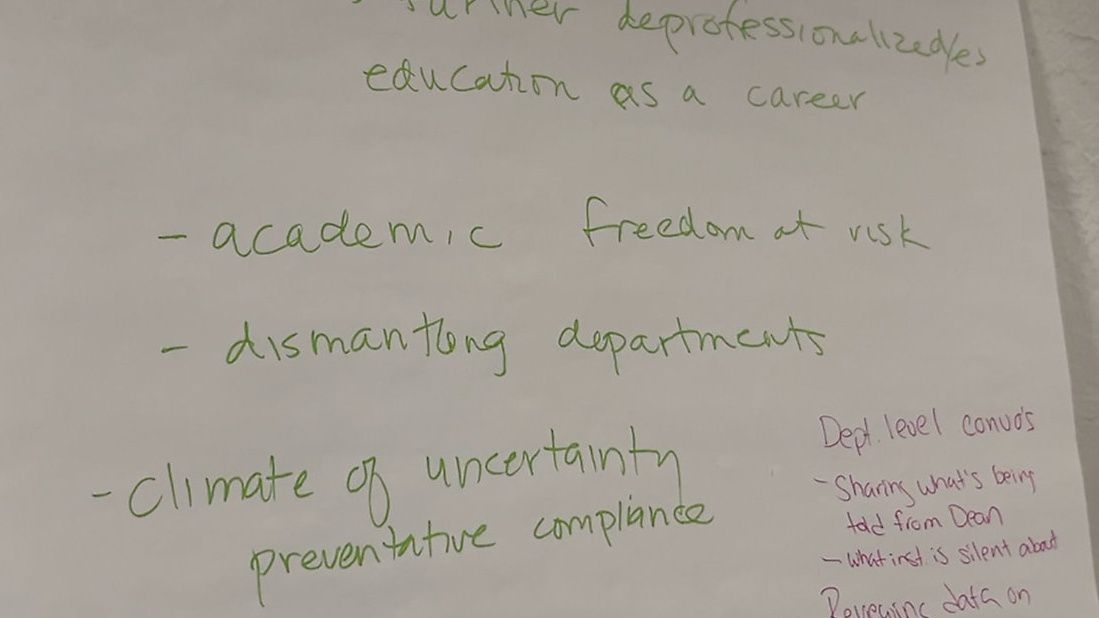 further deprofessionalized/es
education as a career
- academic freedom at risk
- dismantling departments
- climate of uncertainty
preventative compliance
Dept. level convo's
- Sharing what's being
told from Dean
- what inst is silent about
Reviewing data on